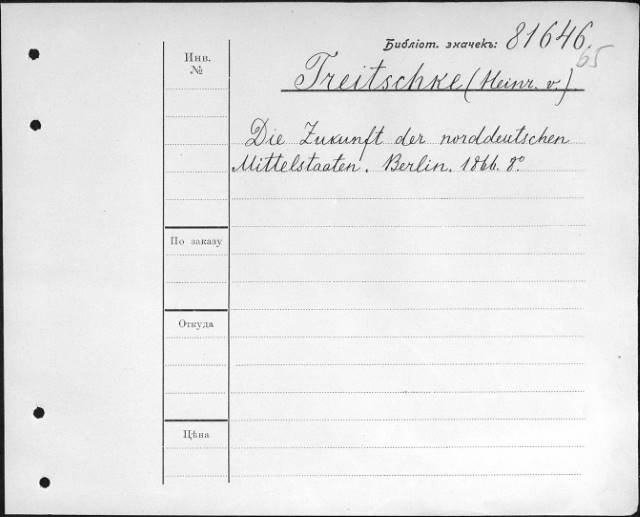 Библіот. значекъ: 81646.
65
Инв.
№
Treitschke (Heinr. v.).
Die Zukunft der norddeutschen
Mittelstaaten. Berlin. 1866. 8º
По заказу
Откуда
Цѣна